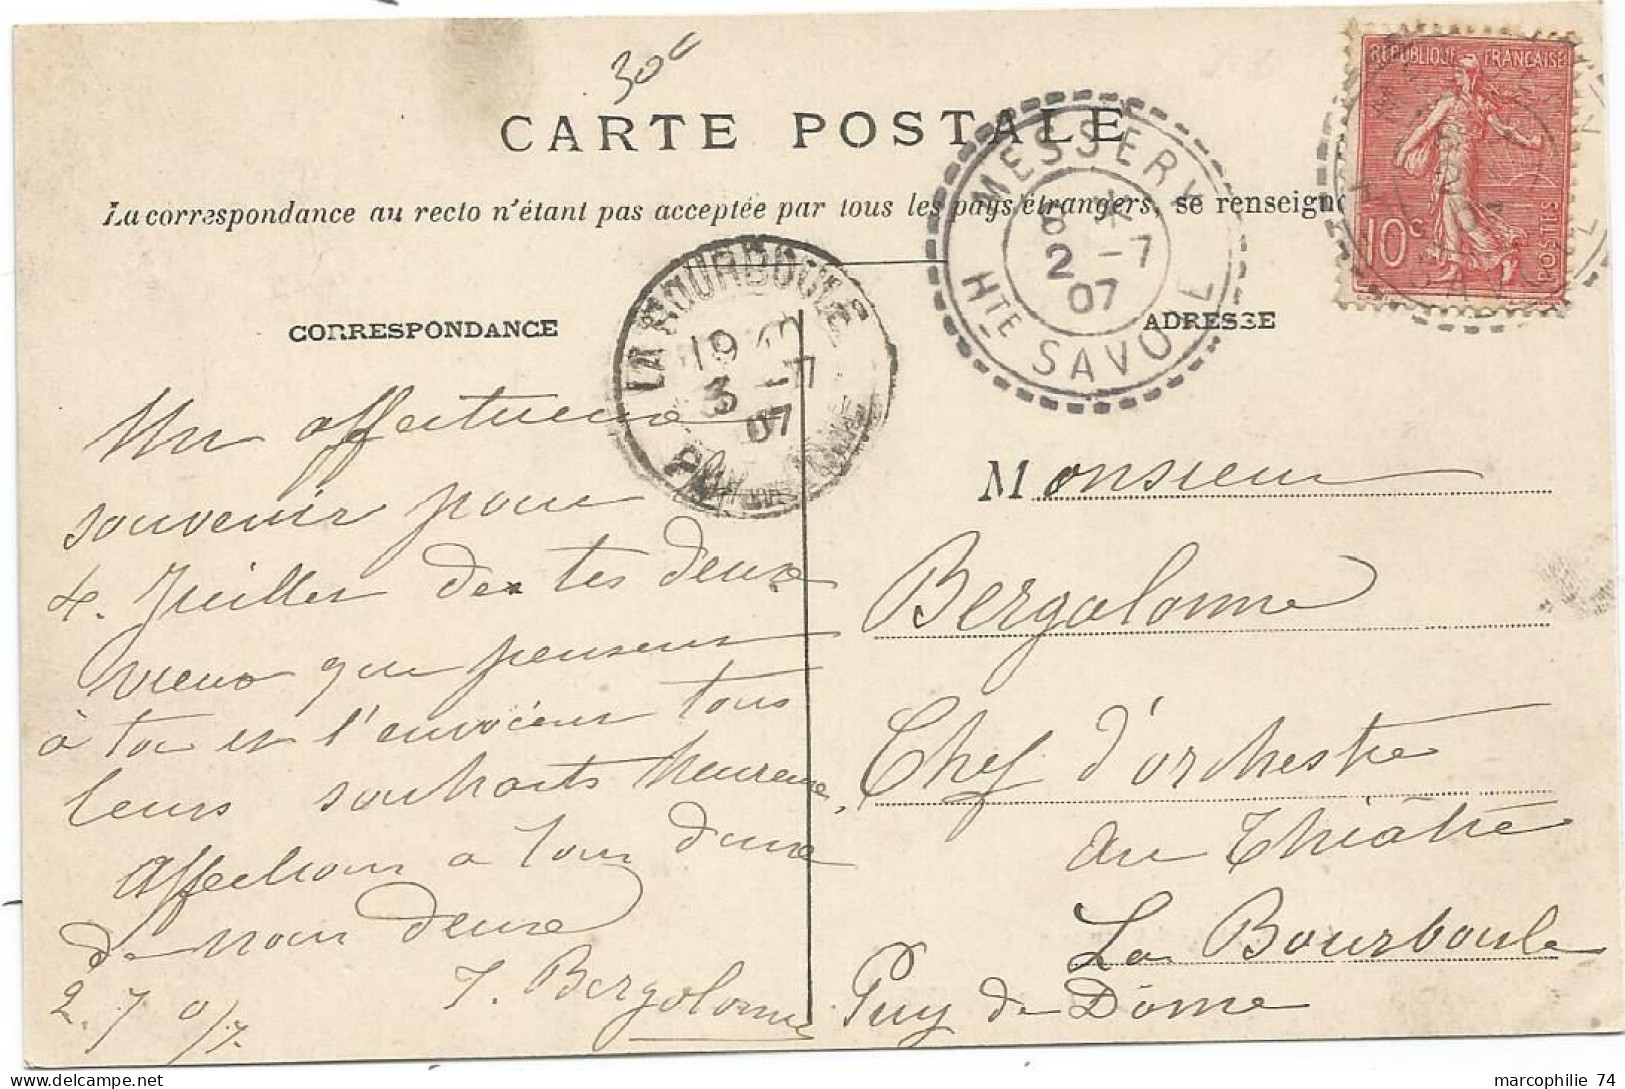 30c
CARTE POSTALE
La correspondance au recto n'étant pas acceptée par tous les pays étrangers, se renseign
RÉPUBLIQUE FRANÇAISE
10c
POSTES
MESSERY
2 -7
07
HTE SAVOIE
LA BOURBOULE
19
3 -7
07
CORRESPONDANCE
ADRESSE
Un affectueux
souvenir pour
4. Juillet de tes deux
vieux qui pensent
à toi et t'envoient tous
leurs souhaits heureux,
Affection à toi deux
de nous deux
2. 7 0/7.
J. Bergalonne
Monsieur
Bergalonne
Chef d'orchestre
au Théâtre
La Bourboule
Puy de Dôme
marcophilie 74